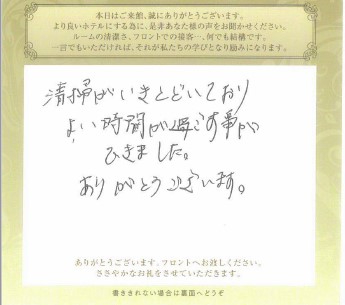 本日はご来館、誠にありがとうございます。
より良いホテルにする為に、是非あなた様の声をお聞かせください。
ルームの清潔さ、フロントでの接客…、何でも結構です。
一言でもいただければ、それが私たちの学びとなり励みになります。
清掃がいきとどいており
よい時間が過ごす事が
できました。
ありがとうございます。
ありがとうございます。フロントへお渡しください。
ささやかなお礼をさせていただきます。
書ききれない場合は裏面へどうぞ